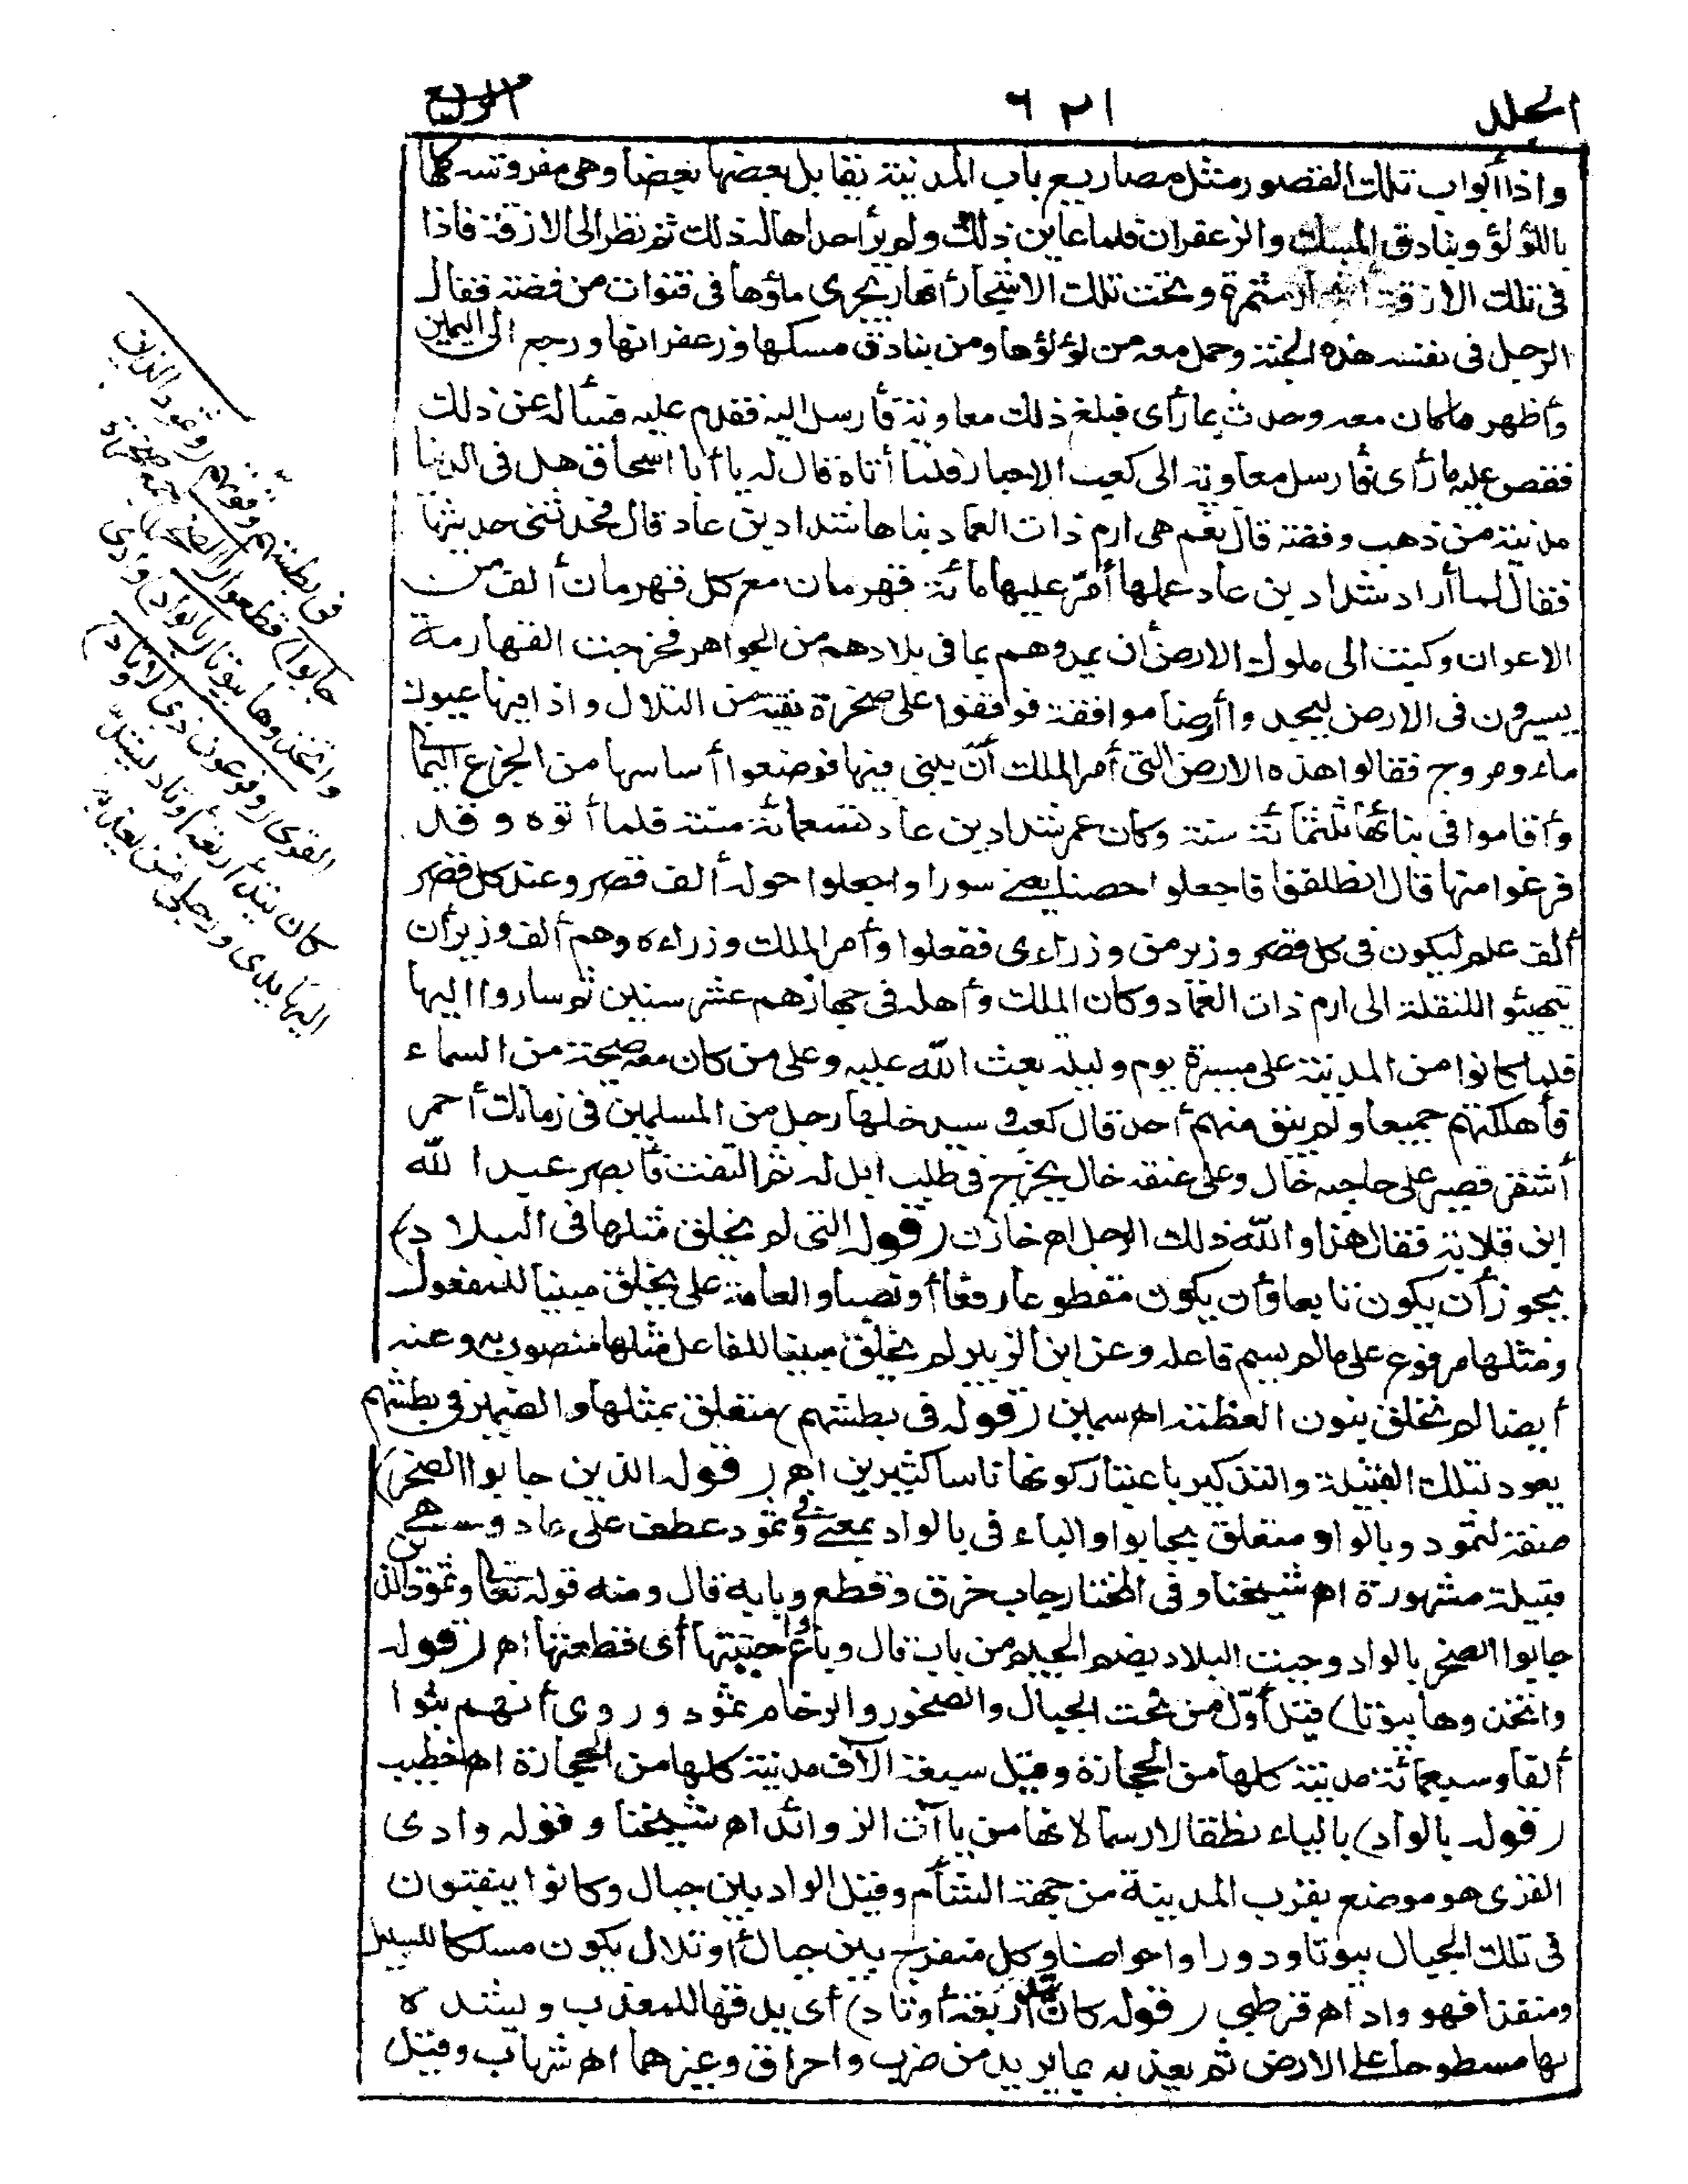 المجلد ٦٢١ الرابع
واذا أبواب تلك القصور مثل مصاريع باب المدينة يقابل بعضها بعضا وهى مفروشة كلها
باللؤلؤ وبنادق المسك والزعفران فلما عاين ذلك ولم ير أحدا هاله ذلك ثم نظر الى الازقة فاذا
فى تلك الازقة أشجار مثمرة وتحت تلك الاشجار أنهار يجرى ماؤها فى قنوات من فضة فقال
الرجل فى نفسه هذه الجنة وحمل معه من لؤلؤها ومن بنادق مسكها وزعفرانها ورجع الى اليمن
وأظهر ما كان معه وحدث بما رأى فبلغ ذلك معاوية فأرسل اليه فقدم عليه فسأله عن ذلك
فقص عليه ما رأى فأرسل معاوية الى كعب الاحبار فلما أتاه قال له يا أبا اسحاق هل فى الدنيا
مدينة من ذهب وفضة قال نعم هى ارم ذات العماد بناها شداد بن عاد قال فحدثنى حديثها
فقال لما أراد شداد بن عاد عملها أمّر عليها مائة قهرمان مع كل قهرمان ألف من
الاعوان وكتب الى ملوك الارض أن يمدوهم بما فى بلادهم من الجواهر فخرجت القهارمة
يسيرون فى الارض ليجدوا أرضا موافقة فوقفوا على صخرة نقية من التلال واذا فيها عيون
ماء ومروج فقالوا هذه الارض التى أمر الملك أن يبنى فيها فوضعوا أساسها من الجزع اليمانى
وأقاموا فى بنائها ثلثمائة سنة وكان عمر شداد بن عاد تسعمائة سنة فلما أتوه وقد
فرغوا منها قال انطلقوا فاجعلوا حصنا يعنى سورا واجعلوا حوله ألف قصر وعند كل قصر
ألف علم ليكون فى كل قصر وزير من وزراءى ففعلوا وأمر الملك وزراءه وهم ألف وزير أن
يتهيئوا للنقلة الى ارم ذات العماد وكان الملك وأهله فى جهازهم عشر سنين ثم ساروا اليها
فلما كانوا من المدينة على مسيرة يوم وليلة بعث الله عليه وعلى من كان معه صيحة من السماء
فأهلكتهم جميعا ولم يبق منهم أحد قال كعب وسيدخلها رجل من المسلمين فى زمانك أحمر
أشقر قصير على حاجبه خال وعلى عنقه خال يخرج فى طلب ابل له ثم التفت فأبصر عبد الله
ابن قلابة فقال هذا والله ذلك الرجل اه خازن (قوله التى لم يخلق مثلها فى البلاد)
يجوز أن يكون تابعا وأن يكون مقطوعا رفعا أو نصبا والعامة على يخلق مبنيا للمفعول
ومثلها مرفوع على ما لم يسم فاعله وعن ابن الزبير لم يخلق مبنيا للفاعل مثلها منصوب به وعنه
أيضا لم نخلق بنون العظمة اه سمين (قوله فى بطشهم) متعلق بمثلها والضمير فى بطشهم
يعود لتلك القبيلة والتذكير باعتبار كونها ناسا كثيرين اه (قوله الذين جابوا الصخر)
صفة لثمود وبالواد متعلق بجابوا والباء فى بالواد بمعنى فى وثمود عطف على عاد وهى
قبيلة مشهورة اه شيخنا وفى المختار جاب خرق وقطع وبابه قال ومنه قوله تعالى وثمود الذين
جابوا الصخر بالواد وجبت البلاد بضم الجيم من باب قال وباع اجتبتها أى قطعتها اه (قوله
واتخذوها بيوتا) قيل أول من نحت الجبال والصخور والرخام ثمود وروى أنهم بنوا
ألفا وسبعمائة مدينة كلها من الحجارة وقيل سبعة آلاف مدينة كلها من الحجارة اه خطيب
(قوله بالواد) بالياء نطقا لا رسما لانها من ياآت الزوائد اه شيخنا وقوله وادى
القرى هو موضع بقرب المدينة من جهة الشأم وقيل الواد بين جبال وكانوا ينقبون
فى تلك الجبال بيوتا ودورا واحواضا وكل منفرج بين جبال أو تلال يكون مسلكا للسيل
ومنفذا فهو واد اه قرطبى (قوله كان يتد أربعة أوتاد) أى يدقها للمعذب ويشده
بها مسطوحا على الارض ثم يعذبه بما يريد من ضرب واحراق وغيرهما اه شهاب وقيل
فى بطشهم وقوتهم (وثمود الذين
جابوا) قطعوا (الصخر) جمع صخرة
واتخذوها بيوتا (بالواد) وادى
القرى (وفرعون ذى الاوتاد)
كان يتد أربعة أوتاد يشد
اليها يدى ورجلى من يعذبه